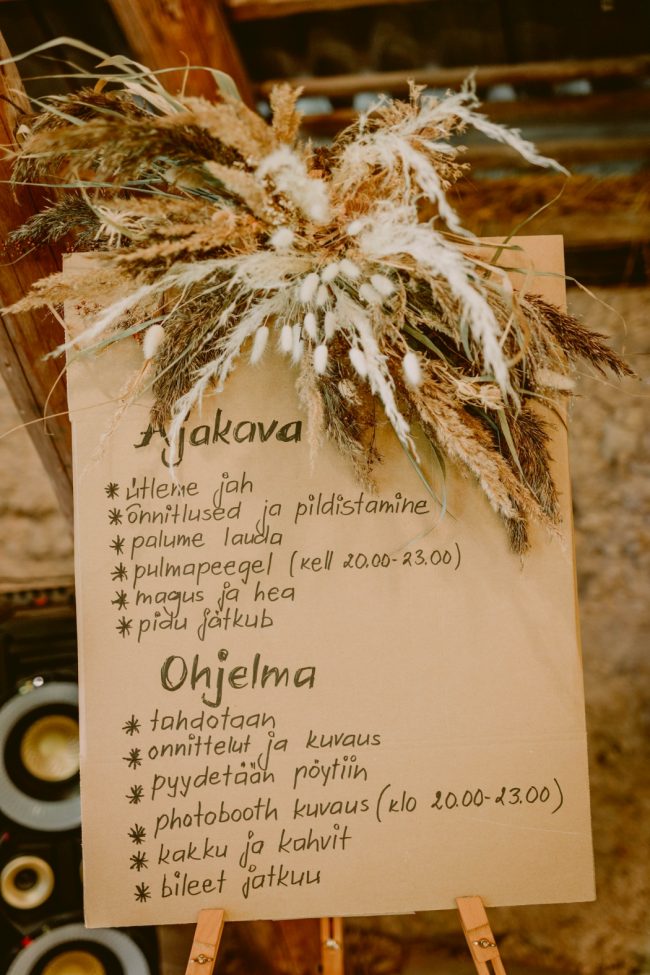 Ajakava
* ütleme jah
* õnnitlused ja pildistamine
* palume lauda
* pulmapeegel (kell 20.00-23.00)
* magus ja hea
* pidu jätkub
Ohjelma
* tahdotaan
* onnittelut ja kuvaus
* pyydetään pöytiin
* photobooth kuvaus (klo 20.00-23.00)
* kakku ja kahvit
* bileet jatkuu